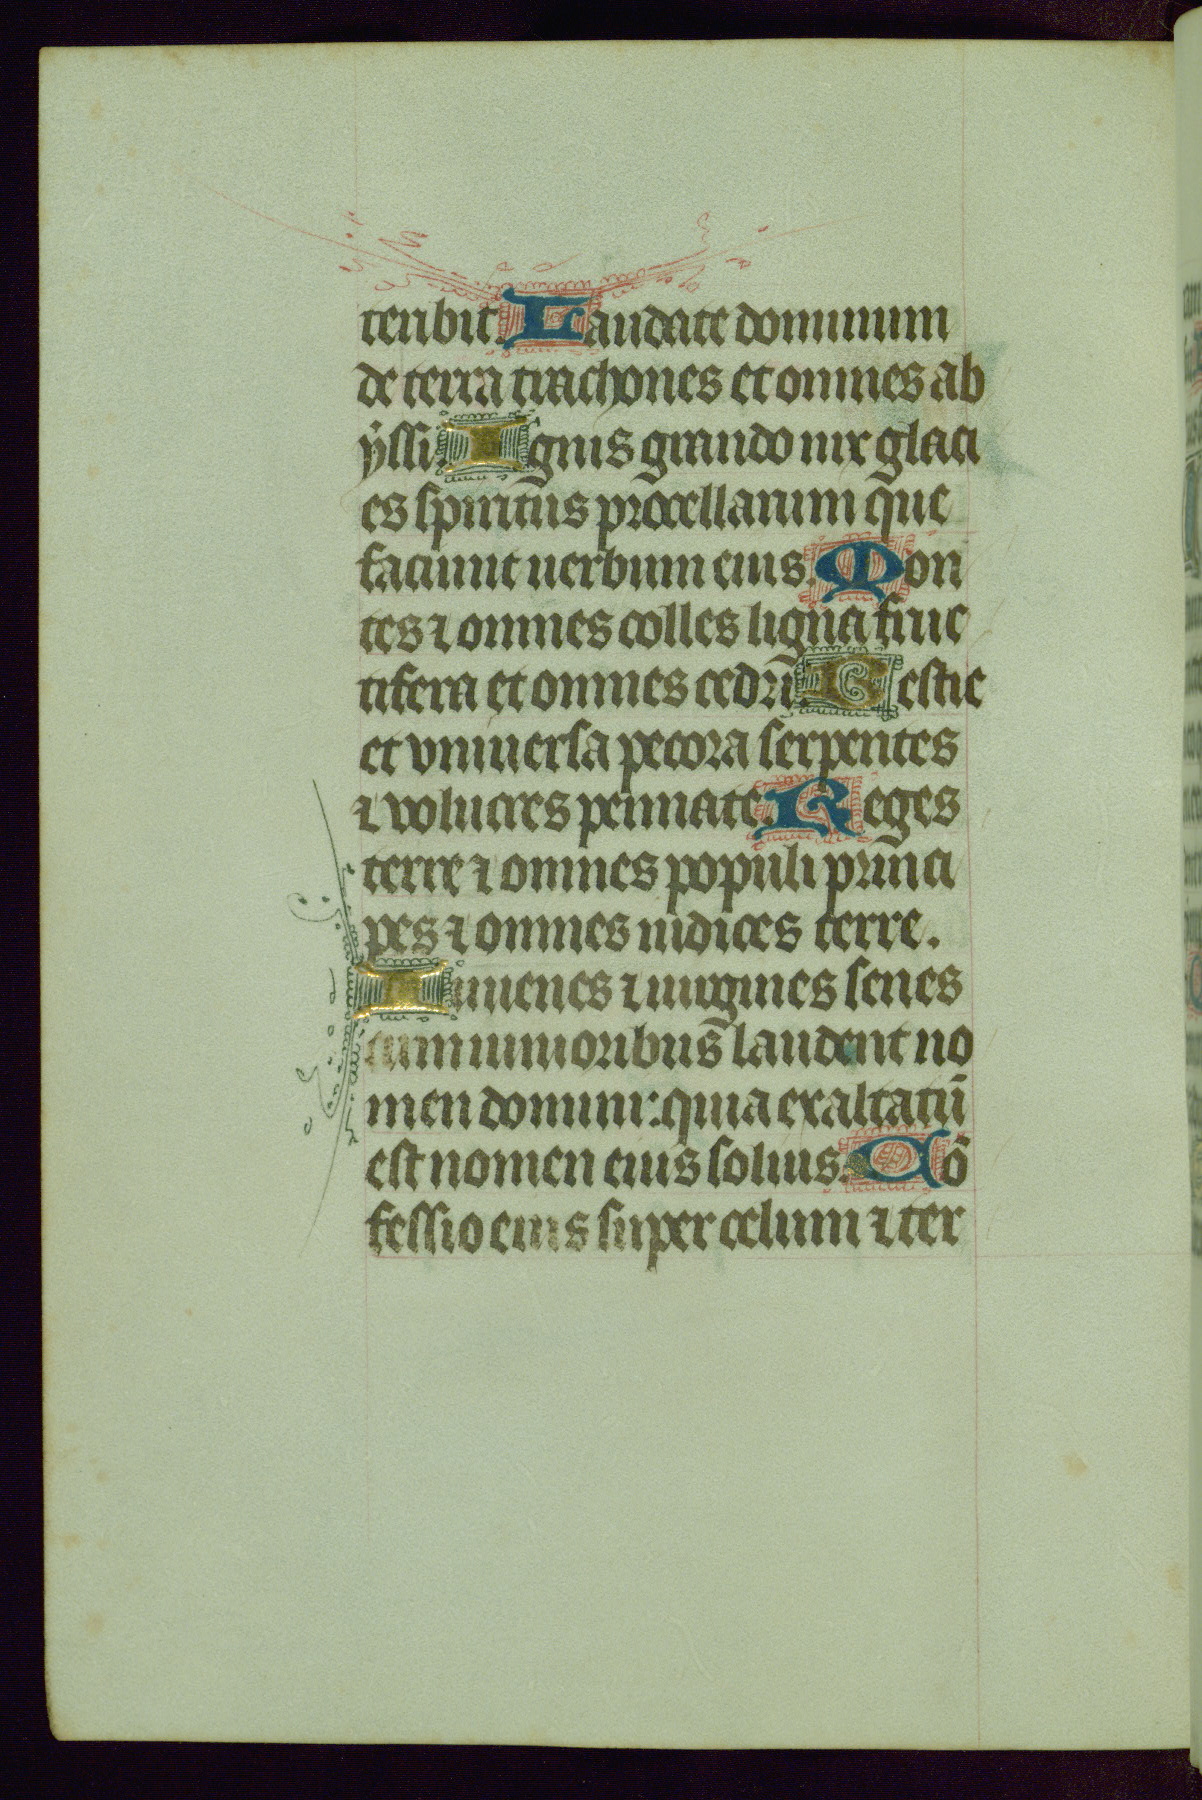 teribit. Laudate dominum
de terra trachones et omnes ab
ẏssi. Ignis grando nix glaci
es spiritus procellarum que
faciunt uerbum eius. Mon
tes ⁊ omnes colles ligna fruc
tifera et omnes cedri. Bestie
et vniuersa pecora serpentes
⁊ volucres pennate. Reges
terre ⁊ omnes populi princi
pes ⁊ omnes iudices terre.
Iuuenes ⁊ uirgines senes
cum iunioribus laudent no
men domini: quia exaltatū
est nomen eius solius. Cō
fessio eius super celum ⁊ ter